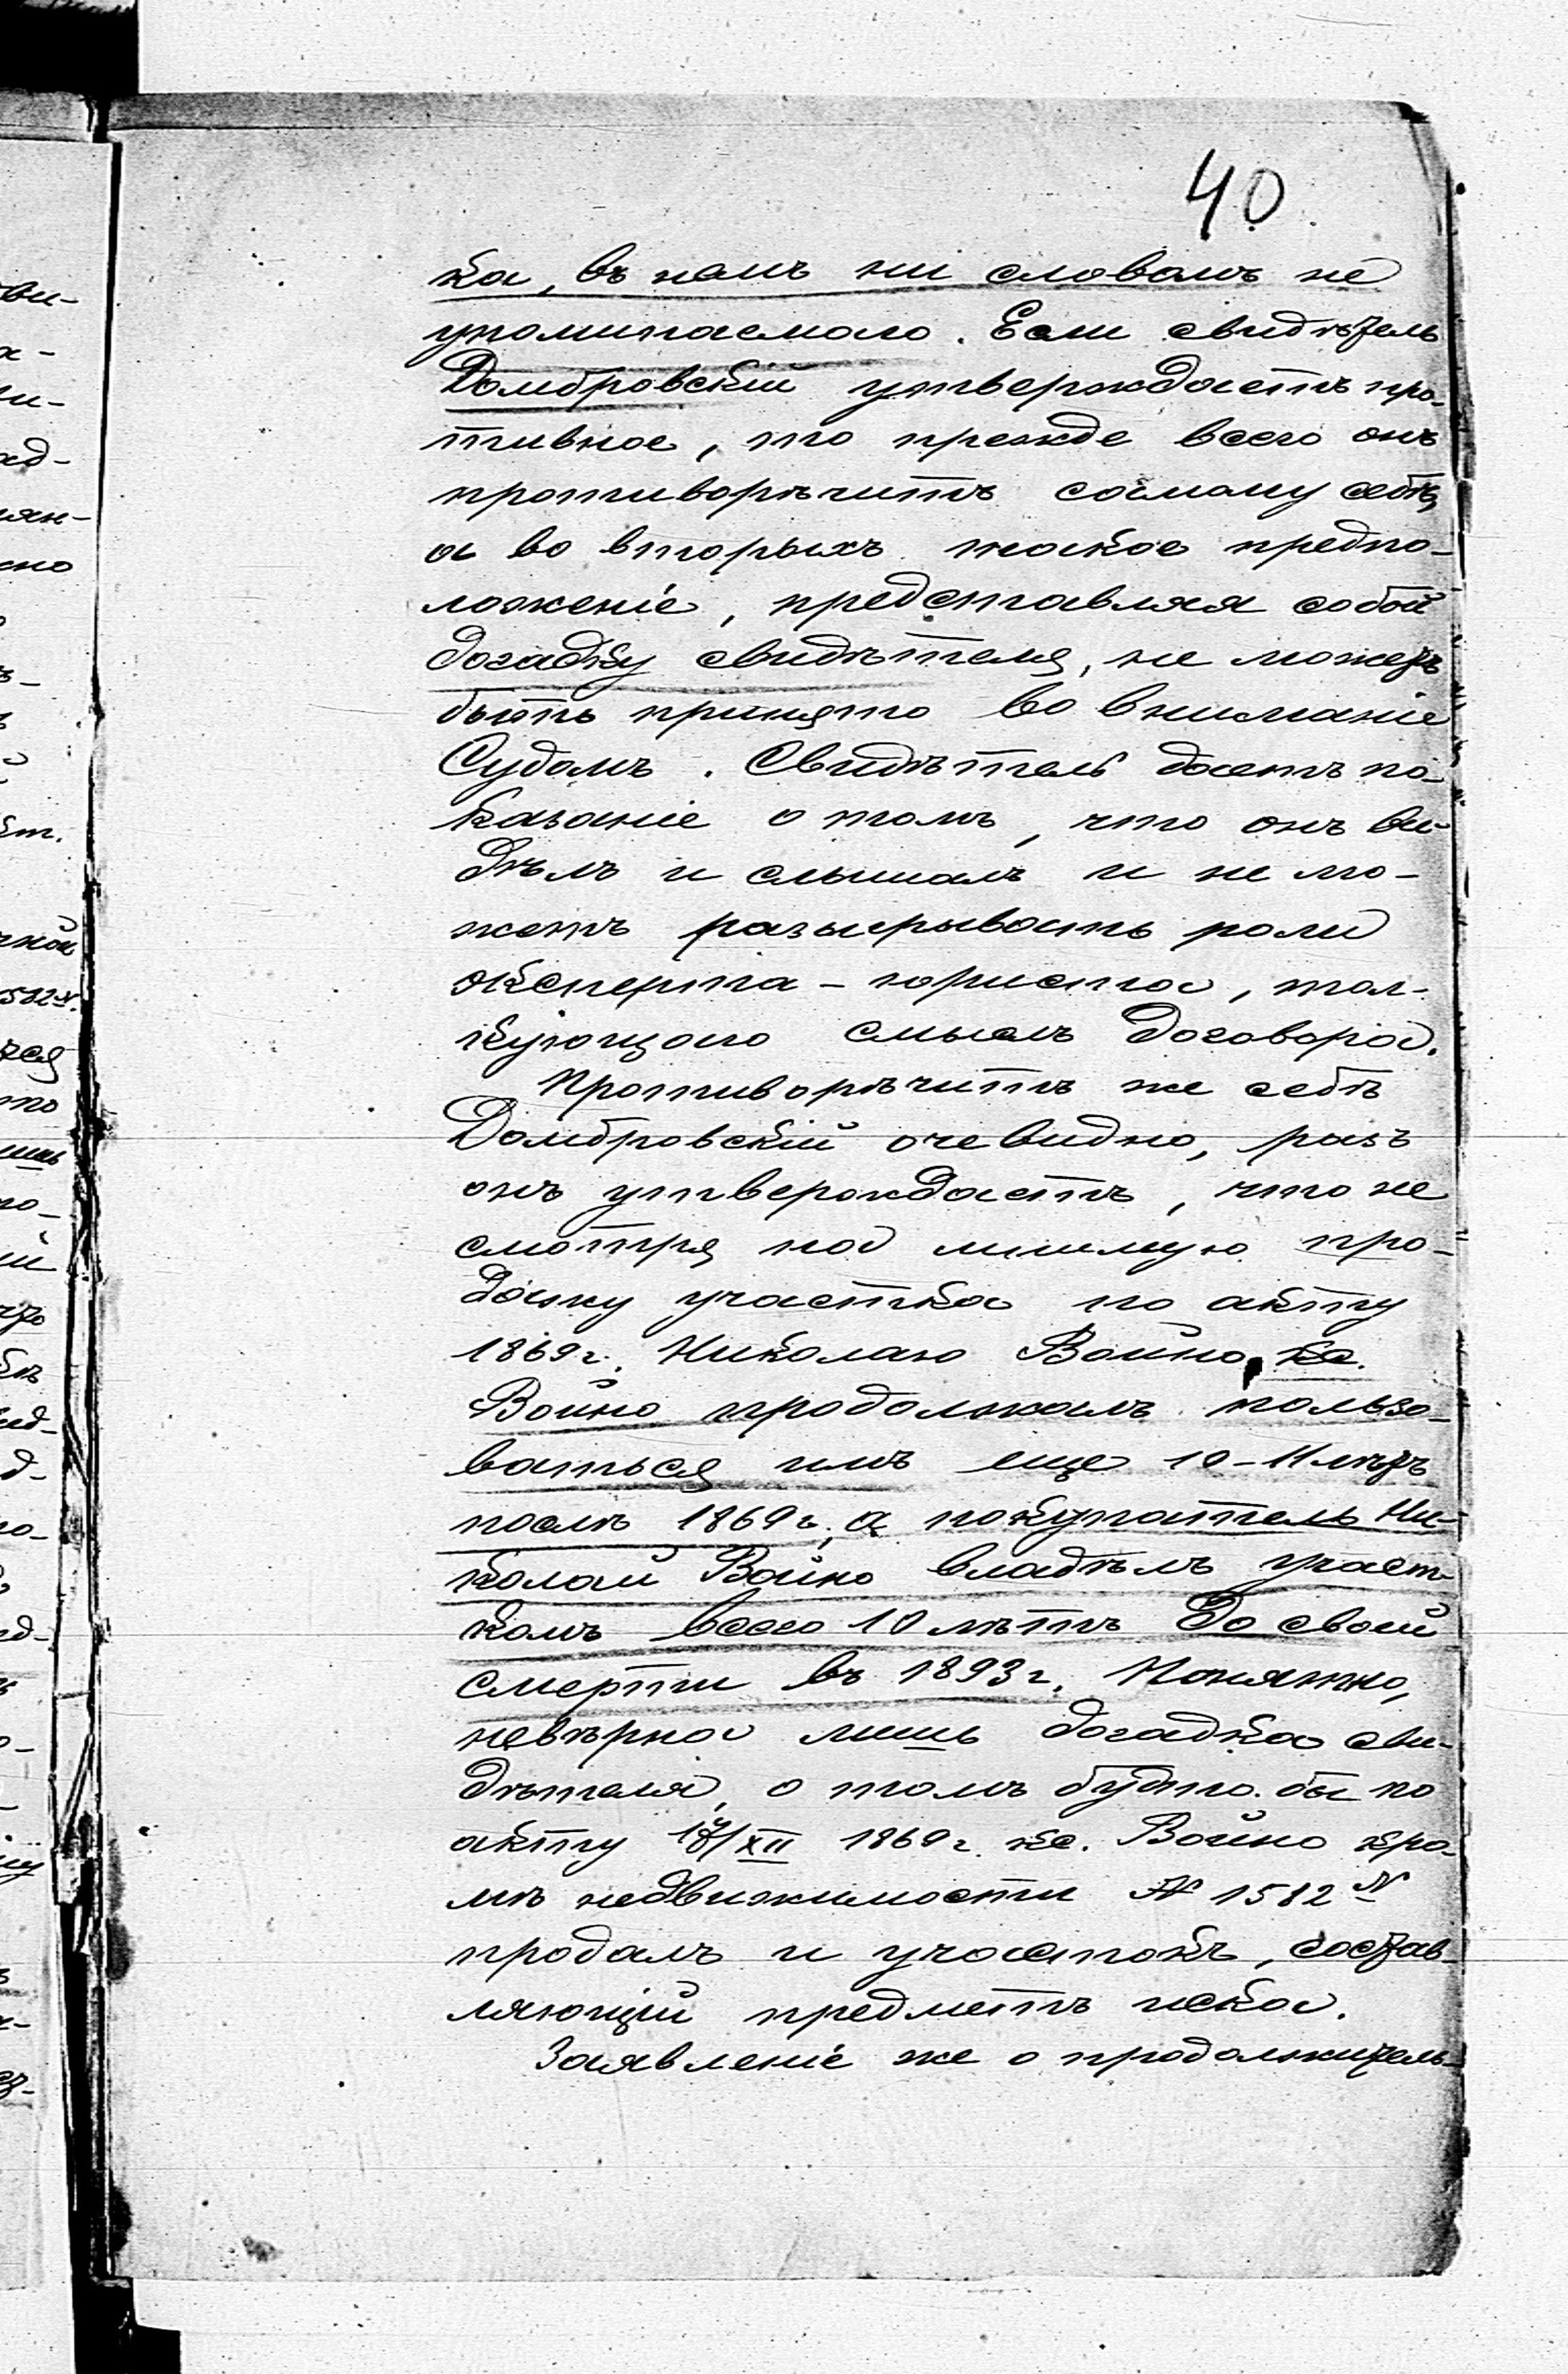 40
ка, въ немъ ни словомъ не
упоминаемаго. Если свидѣтель
Домбровскій утверждаетъ про-
тивное, то прежде всего онъ
противорѣчитъ самому себѣ,
а во вторыхъ такое предпо-
ложеніе, представляя собой
догадку свидѣтеля, не можетъ
быть принято во вниманіе
Судомъ. Свидѣтель даетъ по-
казаніе о томъ, что онъ ви-
дѣлъ и слышалъ и не мо-
жетъ разыгрывать роли
эксперта-юриста, тол-
кующаго смыслъ договора.
Противорѣчитъ же себѣ
Домбровскій очевидно, разъ
онъ утверждаетъ, что не
смотря на мнимую про-
дажу участка по акту
1869 г. Николаю Войно, кс.
Войно продолжалъ пользо-
ваться имъ еще 10-11 лѣтъ
послѣ 1869 г., а покупатель Ни-
колай Войно владѣлъ участ-
комъ всего 10 лѣтъ до своей
смерти въ 1893 г. Понятно,
невѣрна лишь догадка сви-
дѣтеля, о томъ будто бы по
акту /XII 1869 г. кс. Войно кро-
мѣ недвижимости № 1582 N
продалъ и участокъ, состав-
ляющій предметъ иска.
Заявленіе же о продолжитель-
ви-
ли-
ад-
ян-
сно
ет.
чной
1582 N.
тся
то